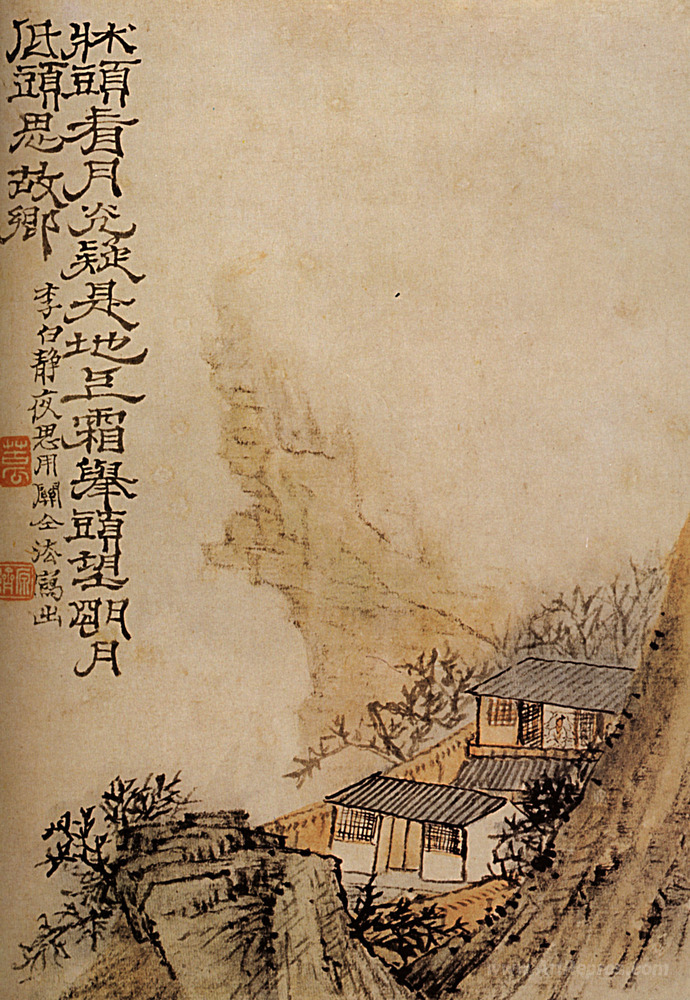 牀頭看月光疑是地上霜舉頭望朙月
低頭思故鄉
李白静夜思用關仝法寫出